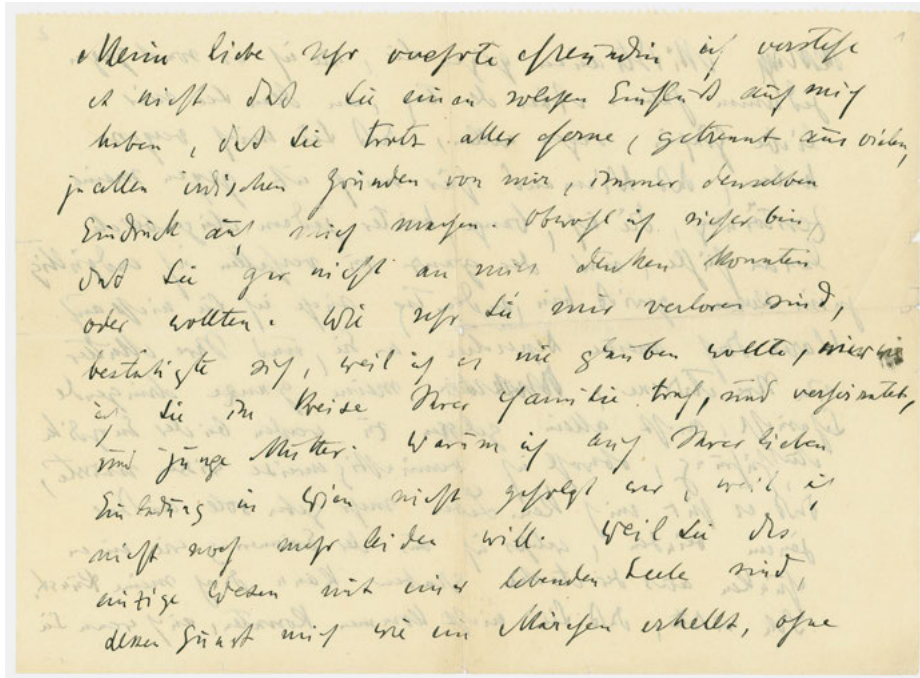 Meine liebe sehr verehrte Freundin ich verstehe
es nicht daß Sie einen solchen Einfluß auf mich
haben, daß Sie trotz aller Ferne, getrennt aus vielen,
ja allen irdischen Gründen von mir, immer denselben
Eindruck auf mich machen. Obwohl ich sicher bin
daß Sie gar nicht an mich denken konnten
oder wollten. Wie sehr Sie mir verloren sind,
bestätigte sich, weil ich es nie glauben wollte, wie
ich Sie im Kreise Ihrer Familie traf, und verheiratet,
und junge Mutter. Warum ich auf Ihrer lieben
Einladung in Wien nicht gefolgt war, weil ich
nicht noch mehr leiden will. Weil Sie das
einzige Wesen mit einer lebenden Seele sind,
deren Gunst mich wie ein Märchen erhellt, ohne